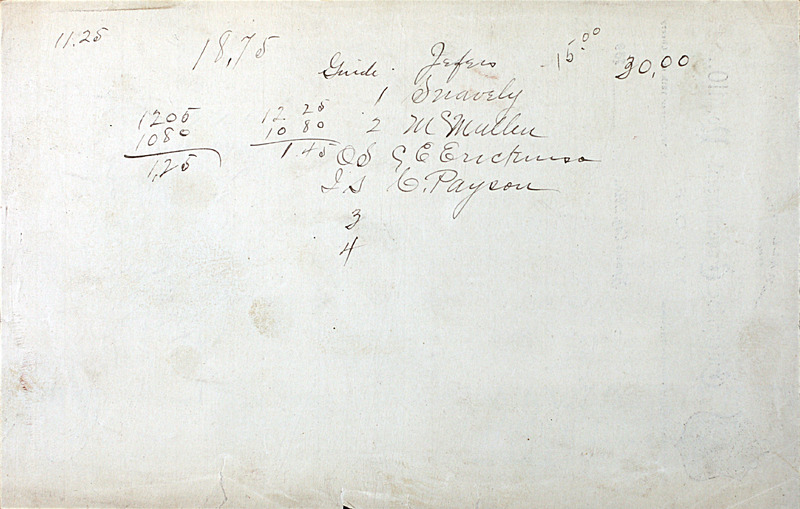 11.25
18,75
Guide. Jefers 15.00 30,00
1 Snavely
1205 12 25 2 McMullen
1080 10 80
1,25 1.45 O S G E Erickson
I.S C. Payson
3
4